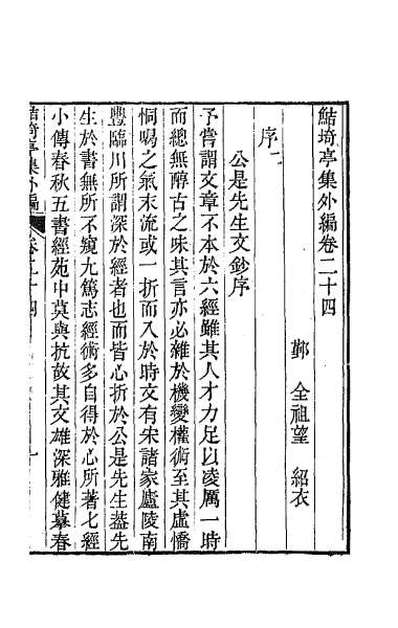 鮚埼亭集外編卷二十四
鄞　全祖望　紹衣
序二
公是先生文鈔序
予嘗謂文章不本於六經雖其人才力足以凌厲一時
而總無醇古之味其言亦必雜於機變權術至其虛憍
恫喝之氣末流或一折而入於時文有宋諸家廬陵南
豐臨川所謂深於經者也而皆心折於公是先生葢先
生於書無所不窺尤篤志經術多自得於心所著七經
小傳春秋五書經苑中莫與抗故其文雄深雅健摹春
鮚埼亭集外編